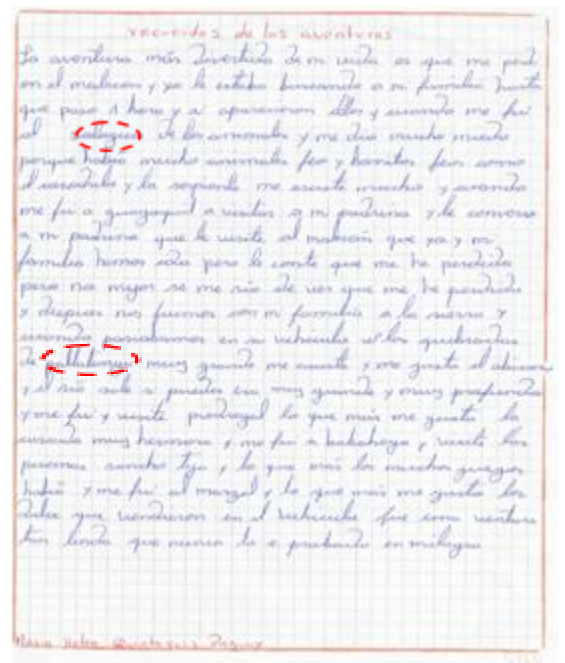 recuerdos de las aventuras
La aventura más Divertida de mi vida es que me perdi
en el malecon y yo le estaba buscando a mi familia hasta
que paso 1 hora y a aparecieron ellos y cuando me fui
al de los animales y me dio mucho miedo
porque habia mucho animales feo y bonitos feos como
el cocodrilo y la serpiente me asuste mucho y cuando
me fui a guayaquil a visitar a mi padrino y le converse
a mi padrino que le visite al malecon que yo y mi
familia hemos ido pero le conte que me he perdido
pero nos mejor se me rio de ver que me he perdido
y despues nos fuimos con mi familia a la sierra y
cuando pasabamos en su vehiculo las quebradas
de muy grande me asuste y me gusto el
y el rio es muy grande y muy profundo
y me fui y visite pedregal lo que más me gusto la
cascada muy hermosa y me fui a babahoyo y visite las
y lo que más los muchos juegos
habia y me fui al y lo que más me gusto los
dulce que vendieron en el vehiculo fue una ventura
tan linda que nunca la e probado en milagro